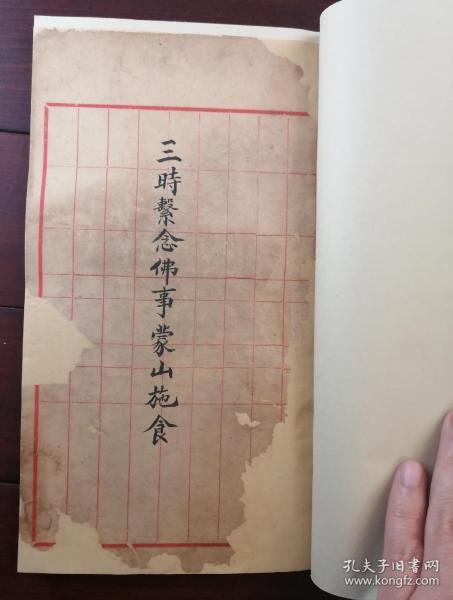 三時繫念佛事蒙山施食
孔夫子旧书网
https://www.kongfz.com